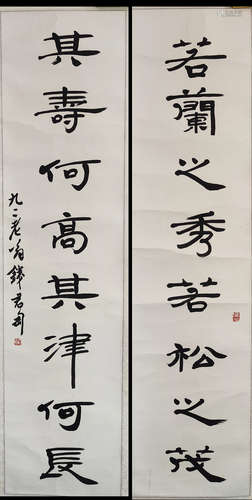 若蘭之秀若松之茂
其壽何高其津何長
九二老翁錢君匋